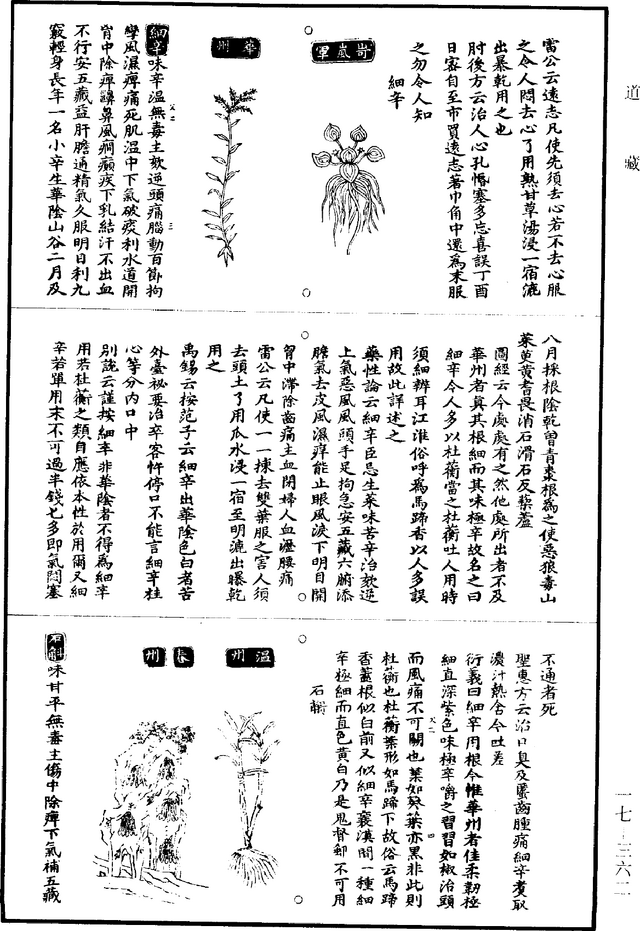 道藏
雷公云遠志凡使先須去心若不去心服
之令人悶去心了用熟甘草湯浸一宿漉
出暴乾用之也
肘後方云治人心孔惛塞多忘喜誤丁酉
日密自至市買遠志著巾角中還為末服
之勿令人知
細辛
岢嵐軍
華州
細辛味辛温無毒主欬逆頭痛腦動百節拘
攣風濕痺痛死肌温中下氣破痰利水道開
胷中除痺齆鼻風癇癲疾下乳結汗不出血
不行安五藏益肝膽通精氣久服明目利九
竅輕身長年一名小辛生華陰山谷二月及
八月採根陰乾曾青棗根為之使惡狼毒山
茱萸黄耆畏消石滑石反藜蘆
圖經云今處處有之然他處所出者不及
華州者真其根細而其味極辛故名之曰
細辛今人多以杜蘅當之杜蘅吐人用時
須細辨耳江淮俗呼為馬蹄香以人多誤
用故此詳述之
藥性論云細辛臣忌生菜味苦辛治欬逆
上氣惡風風頭手足拘急安五藏六腑添
膽氣去皮風濕痒能止眼風淚下明目開
胷中滯除齒痛主血閉婦人血瀝腰痛
雷公云凡使一一揀去雙葉服之害人須
去頭土了用瓜水浸一宿至明漉出曝乾
用之
禹錫云按范子云細辛出華陰色白者苦
外臺祕要治卒客忤停口不能言細辛桂
心等分内口中
别說云謹按細辛非華陰者不得為細辛
用若杜蘅之類自應依本性於用爾又細
辛若單用末不可過半錢匕多即氣悶塞
不通者死
聖惠方云治口臭及䘌齒腫痛細辛煮取
濃汁熱含冷吐差
衍義曰細辛用根今惟華州者佳柔韌極
細直深紫色味極辛嚼之習習如椒治頭
面風痛不可闕也葉如葵葉赤黑非此則
杜蘅也杜蘅葉形如馬蹄下故俗云馬蹄
香蓋根似白前又似細辛襄漢間一種細
辛極細而直色黄白乃是鬼督郵不可用
石斛
温州
春州
石斛味甘平無毒主傷中除痺下氣補五藏
一七－三六二